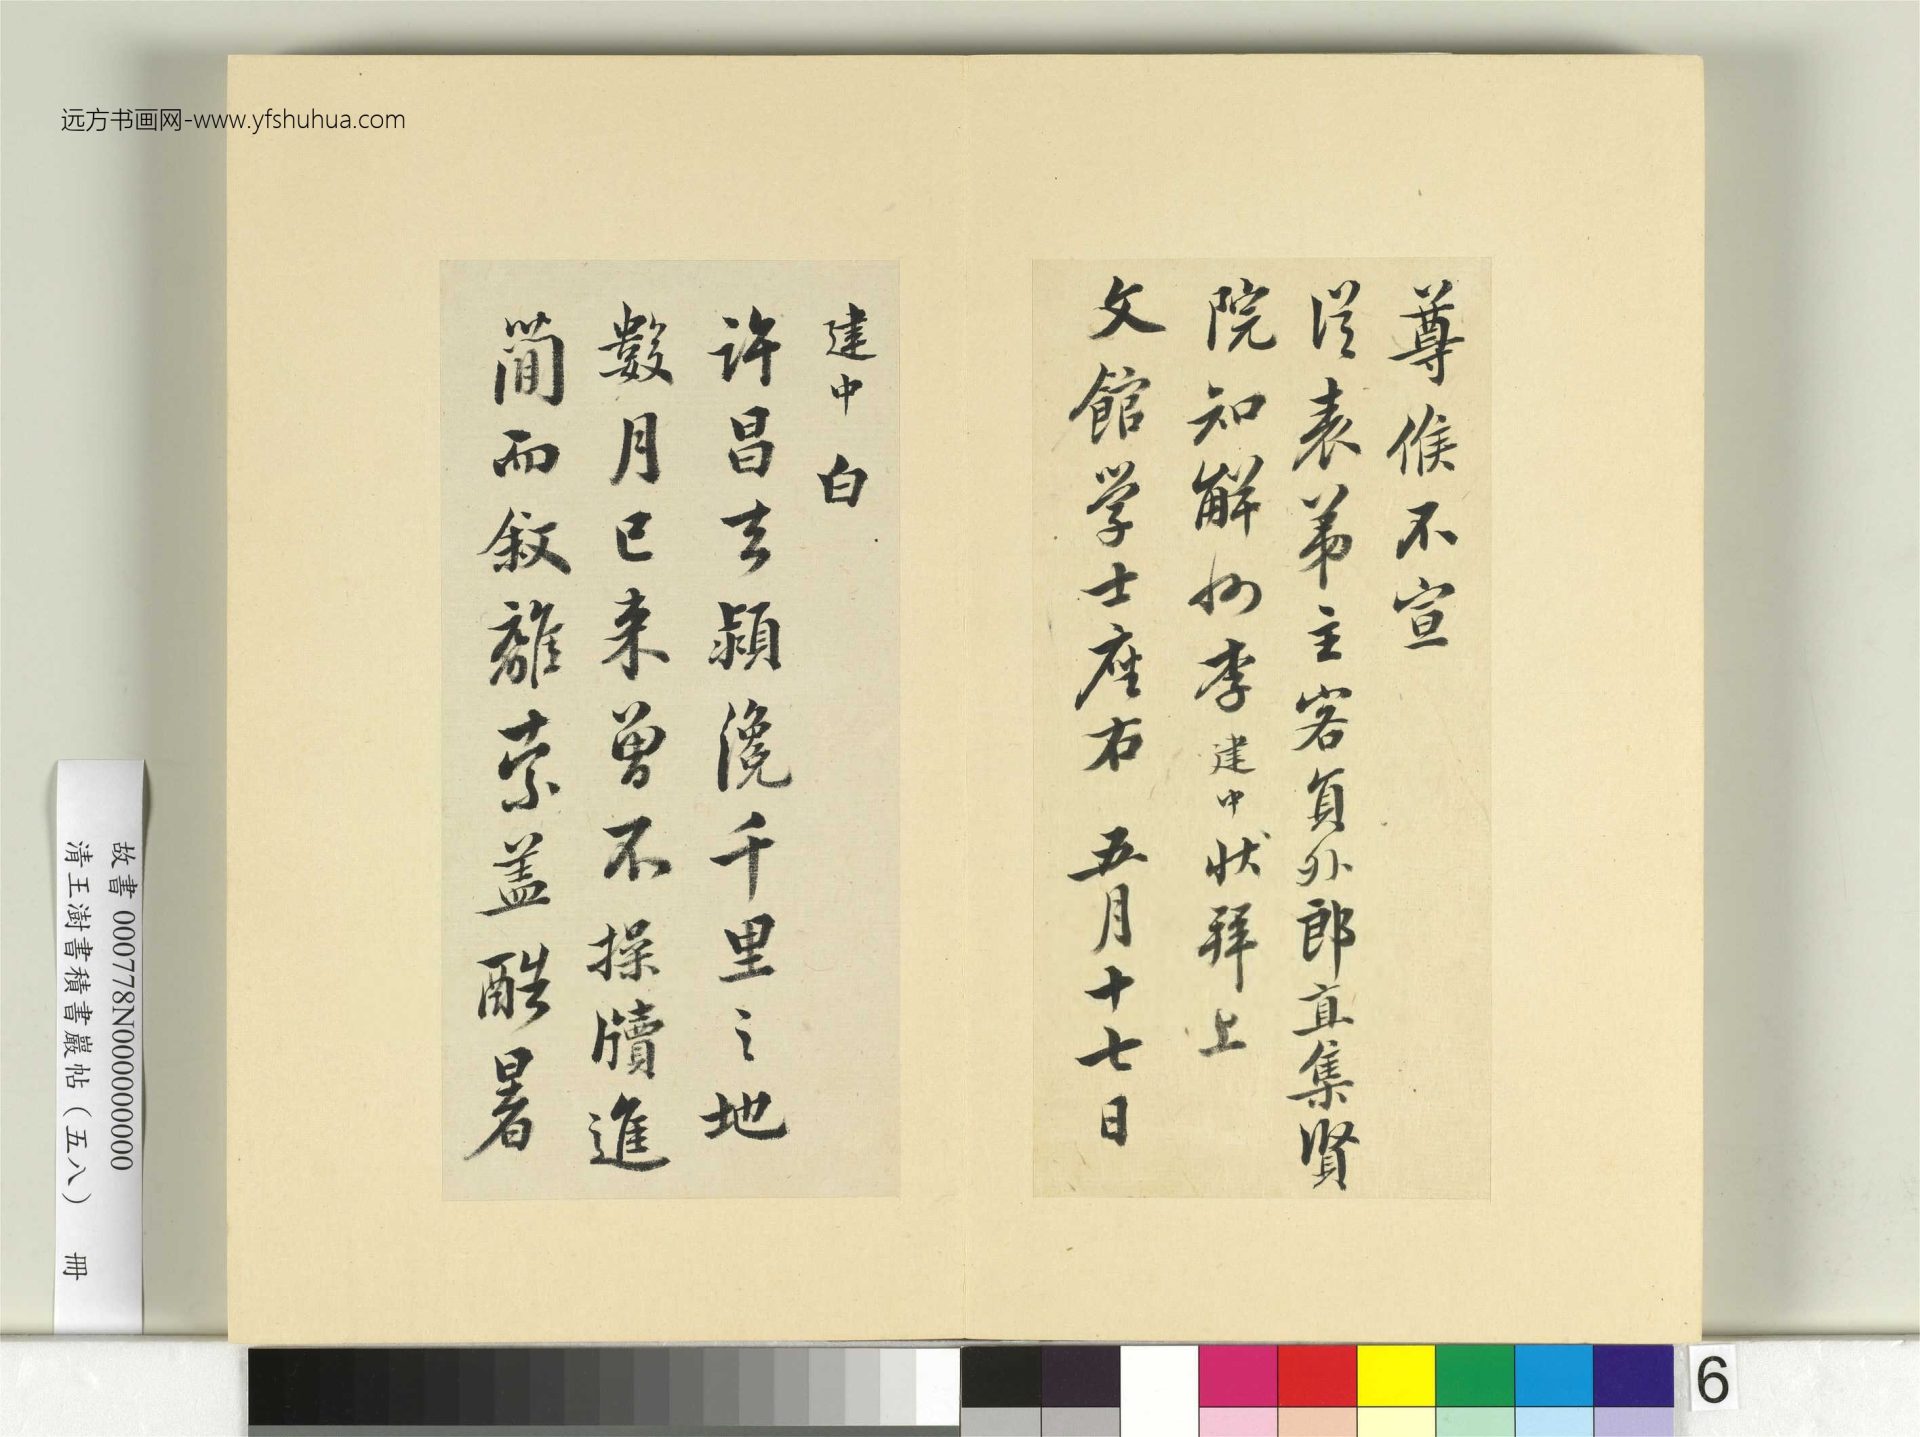 远方书画网-www.yfshuhua.com
尊候不宣
從表弟主客員外郎直集賢
院知解州李建中狀拜上
文館学士座右 五月十七日
建中白
許昌去潁浼千里之地
數月已来曾不操牘進
簡而叙離索盖酷暑
故書 000778N000000000
清王澍書積書巖帖(五八) 冊
6